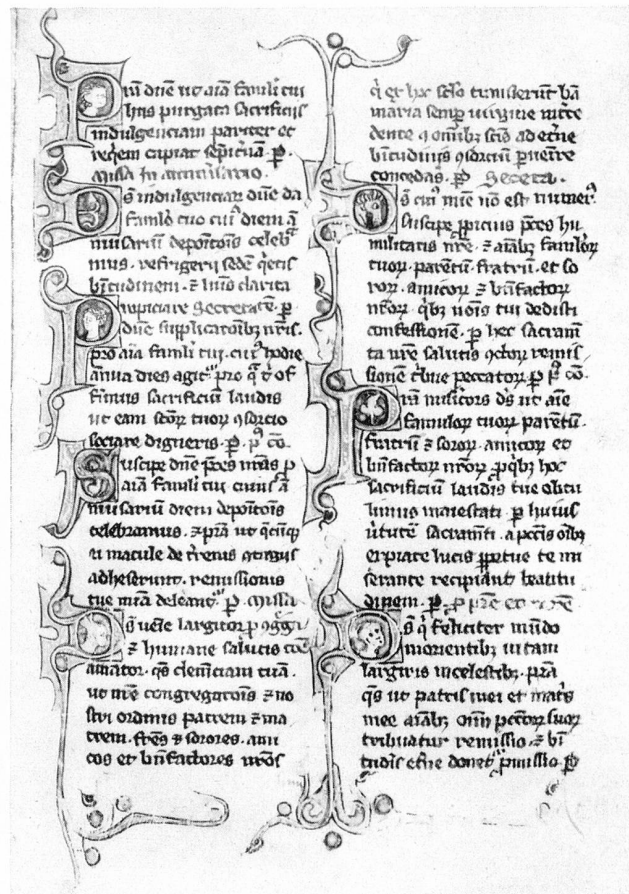 Pm̄ dn̄e ut aīa famli tui
hiis purgata sacrificiis
indulgenciam pariter et
reqem capiat sep̄itnā ꝑ.
Missa in anniūsario.
Ds̄ indulgenciar dn̄e da
famlo tuo cuiꝰ diem ān
niūsarium deponōis celebͣ
mus. refrigerii sedē qͥetis
bt̄itudinem. ⁊ luīs clarita
Propiciare Secreta tē ꝑ
dn̄e supplicatōibꝫ nr̄is.
pro aīa famli tui. cuiꝰ hodie
annua dies agit᷑ pro q̄ t̄ of
ferimus sacrificiū laudis
ut eam sc̄oꝝ tuoꝝ ꝯsorcio
sociare digneris. ꝑ. pꝰ cō.
Suscipe dn̄e p̄ces nr̄as ꝑ
aīa famli tui cuius ān
niūsarium diem deponōis
celebramus. ⁊ p̄ta ut q̄ cūqꝫ
ei macule de t̄renis ꝯtagiis
adheserunt. remissionis
tue mīa deleant᷑ ꝑ. Missa
Ds̄ uēie largitor ꝑ ꝯggī
⁊ humane salutis
amator. qs̄ clem̄ciam tuā.
ut nr̄e congregatōis ⁊ no
stri ordinis patrem ⁊ ma
trem. fr̄es ⁊ sorores. ami
cos et bn̄factores nr̄os
qͥ ex hoc sc̄lo transierunt bā
maria semp uirgine int̄ce
dente ꝯ om̄ibꝫ sc̄is ad et̄ne
bt̄itudinis ꝯsorciū ꝑuenire
concedas. ꝑ Secreta.
Ds̄ cuiꝰ mīe nō est numerꝰ
suscipe ꝓpicius p̄ces hu
militatis nr̄e. ⁊ aīabꝫ famloꝝ
tuoꝝ. parentū. fratrū. et so
roꝝ. amicoꝝ ⁊ bn̄factoꝝ
nr̄oꝝ. qͥbꝫ noīs tui dedisti
confessionē. ꝑ hec sacram̄
ta nr̄e salutis ꝯctoꝝ remis
sionē tͥbue peccatoꝝ ꝑ pꝰ cō.
Pm̄ mis̄icors ds̄ ut aīe
famuloꝝ tuoꝝ parentū.
fratrū ⁊ soroꝝ. amicoꝝ et
bn̄factoꝝ nr̄oꝝ. ꝓ qͥbꝫ hoc
sacrificiū laudis tue obtu
limus maiestati. ꝑ huius
uirtutē sacram̄ti. a pc̄cis oībꝫ
expiate lucis ꝑpetue te mi
serante recipiant beatitu
dinem. ꝑ. ꝓ
Ds̄ qͥ feliciter mūdo
morientibꝫ uitam
largiris in celestibꝫ. p̄ta
qs̄ ut patris mei et mat̄s
mee aīabꝫ om̄i pc̄coꝝ suoꝝ
tribuatur remissio. ⁊ bt̄i
tudīs et̄ne donet᷑ ꝑmissio ꝑ